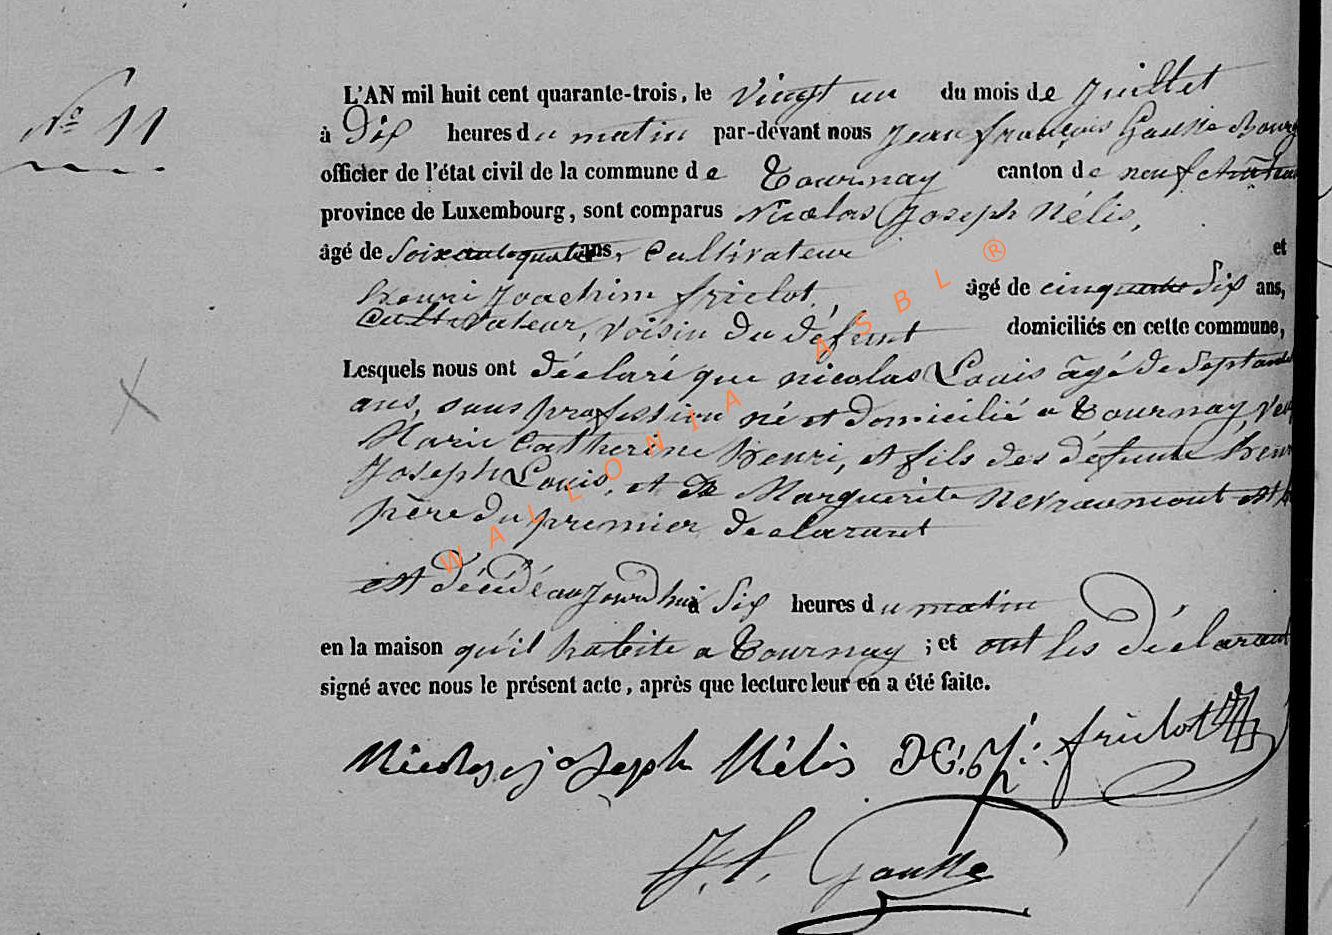 N° 11
L'AN mil huit cent quarante-trois, le vingt un du mois de Juillet
à Dix heures du matin par-devant nous Jean françois Gausse Bourg
officier de l'état civil de la commune de Tournay canton de neufchâteau
province de Luxembourg, sont comparus Nicolas Joseph Nélis,
âgé de Soixante quatre ans, Cultivateur et
Henri Joachim friclot, âgé de cinquante Six ans,
Cultivateur, voisin du défunt domiciliés en cette commune,
Lesquels nous ont déclaré que nicolas Louis âgé de Septante
ans, sans profession né et domicilié a Tournay, veuf
Marie Catherine Henri, et fils des défunts Henri
Joseph Louis, et de Marguerite Nevraumont
père du premier declarant
est décédé aujourd'hui à Six heures du matin
en la maison qu'il habite a Tournay ; et ont les déclarant
signé avec nous le présent acte, après que lecture leur en a été faite.
Nicolas joseph Nélis friclot
J. f. Gausse
WALLONIA ASBL ®